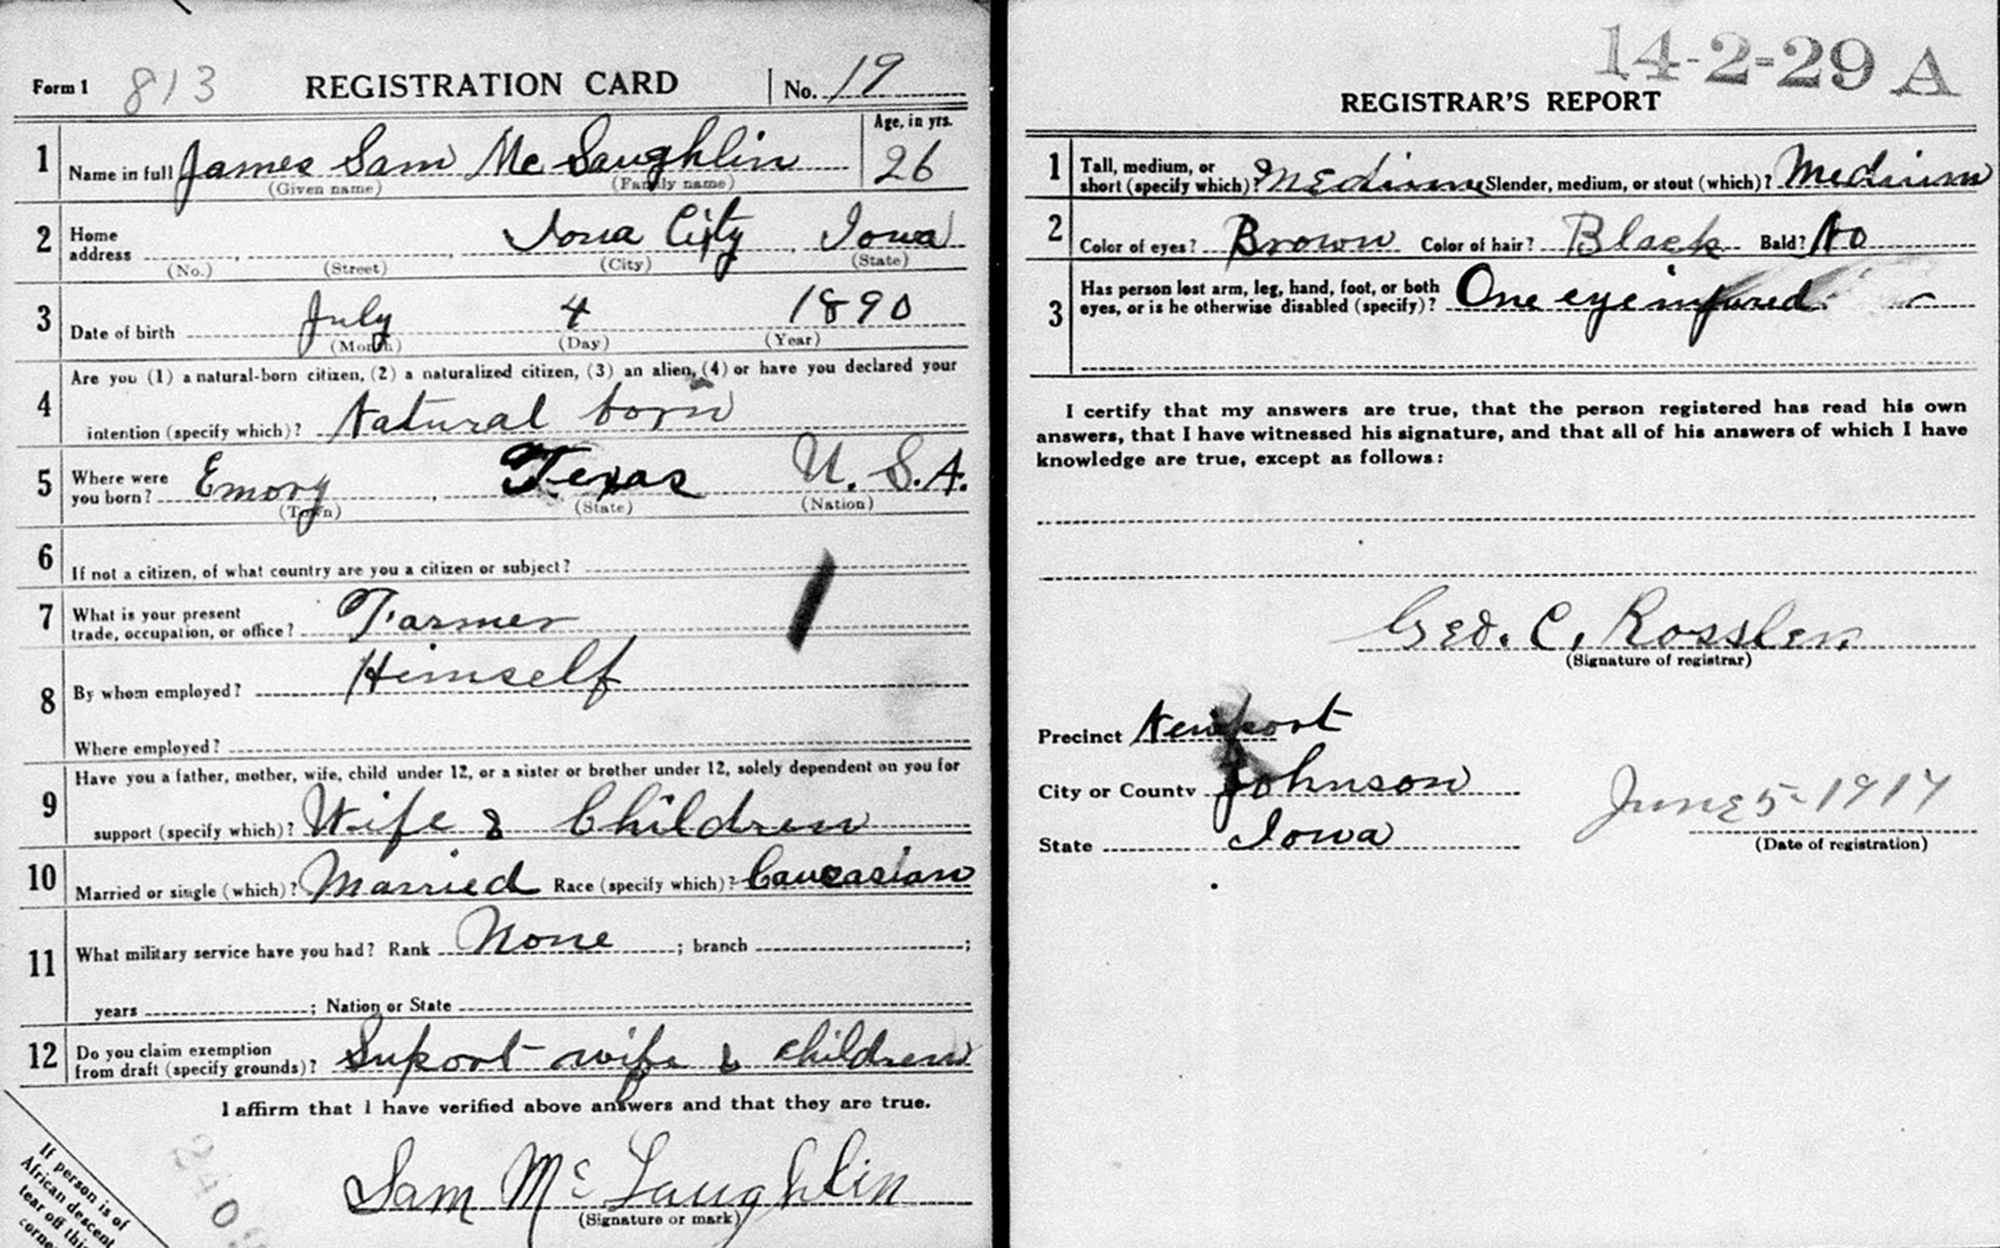 Form 1 813 REGISTRATION CARD No. 19
1 Name in full James Sam McLaughlin Age, in yrs. 26
(Given name) (Family name)
2 Home address Iowa City, Iowa
(No.) (Street) (City) (State)
3 Date of birth July 4 1890
(Month) (Day) (Year)
4 Are you (1) a natural-born citizen, (2) a naturalized citizen, (3) an alien, (4) or have you declared your
intention (specify which)? Natural born
5 Where were you born? Emory, Texas U.S.A.
(Town) (State) (Nation)
6 If not a citizen, of what country are you a citizen or subject?
7 What is your present trade, occupation, or office? Farmer
8 By whom employed? Himself
Where employed?
9 Have you a father, mother, wife, child under 12, or a sister or brother under 12, solely dependent on you for
support (specify which)? Wife & Children
10 Married or single (which)? Married Race (specify which)? Caucasian
11 What military service have you had? Rank None; branch ;
years ; Nation or State
12 Do you claim exemption from draft (specify grounds)? Suport wife & children
I affirm that I have verified above answers and that they are true.
Sam McLaughlin
(Signature or mark)
If person is of
African descent
tear off this
corner
14-2-29 A
REGISTRAR'S REPORT
1 Tall, medium, or short (specify which)? Medium Slender, medium, or stout (which)? Medium
2 Color of eyes? Brown Color of hair? Black Bald? No
3 Has person lost arm, leg, hand, foot, or both eyes, or is he otherwise disabled (specify)? One eye injured
I certify that my answers are true, that the person registered has read his own
answers, that I have witnessed his signature, and that all of his answers of which I have
knowledge are true, except as follows:
Geo. C. Rossler
(Signature of registrar)
Precinct Newport
City or County Johnson
State Iowa
June 5-1917
(Date of registration)